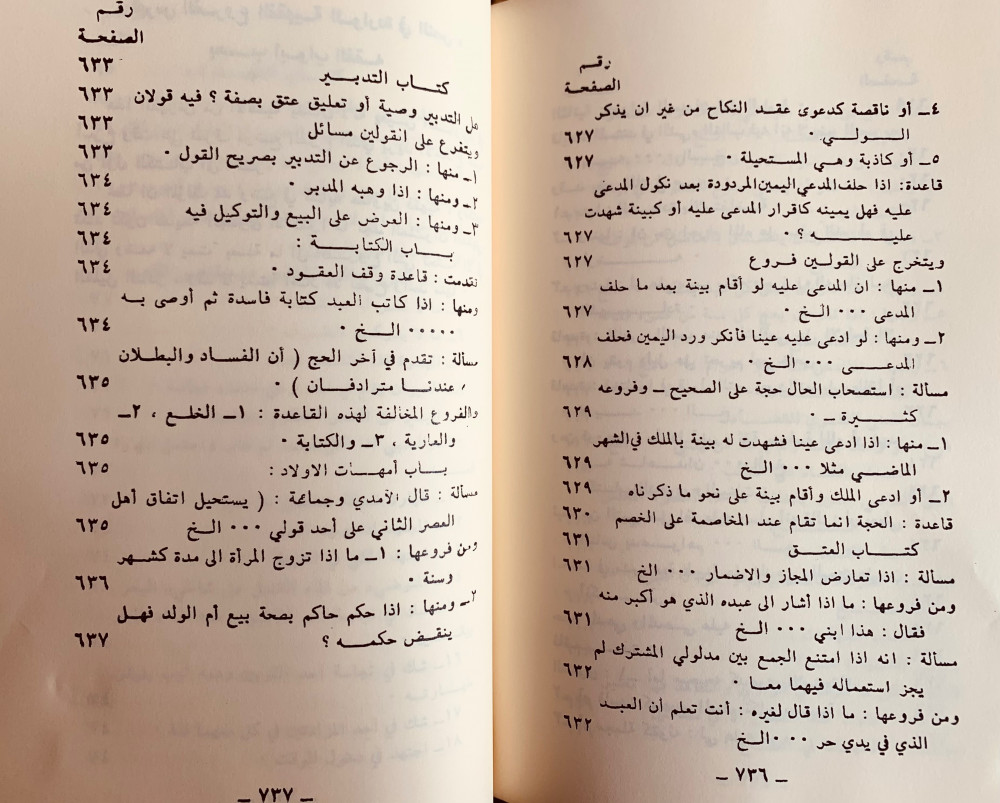 رقم
الصفحة
٤ــ أو ناقصة كدعوى عقد النكاح من غير ان يذكر
الـــولي ٠ ٦٢٧
٥ــ أو كاذبة وهي المستحيلة ٠ ٦٢٧
قاعدة: اذا حلف المدعي اليمين المردودة بعد نكول المدعى
عليه فهل يمينه كاقرار المدعى عليه أو كبينة شهدت
عليــــه ؟ ٠ ٦٢٧
ويتخرج على القولين فروع ٦٢٧
١ــ منها : ان المدعى عليه لو أقام بينة بعد ما حلف
المدعى ٠٠٠ الخ ٠ ٦٢٧
٢ــ ومنها : لو ادعى عليه عينا فأنكر ورد اليمين فحلف
المدعــى ٠٠٠ الخ ٠ ٦٢٨
مسألة : استصحاب الحال حجة على الصحيح ــ وفروعه
كثـــيرة ــ ٠ ٦٢٩
١ــ منها : اذا ادعى عينا فشهدت له بينة بالملك في الشهر
الماضي مثلا ٠٠٠ الـخ ٦٢٩
٢ــ أو ادعى الملك وأقام بينة على نحو ما ذكرناه ٦٢٩
قاعدة : الحجة انما تقام عند المخاصمة على الخصم ٦٣٠
كتــــاب العتــق ٦٣١
مسألة : اذا تعارض المجاز والاضمار ٠٠٠ الخ ٦٣١
ومن فروعها : ما اذا أشار الى عبده الذي هو أكبر منه
فقال : هذا ابني ٠٠٠ الـخ ٦٣١
مسألة : انه اذا امتنع الجمع بين مدلولي المشترك لم
يجز استعماله فيهما معـا ٠ ٦٣٢
ومن فروعها : ما اذا قال لغيره : أنت تعلم أن العبـد
الذي في يدي حر ٠٠٠ الـخ ٦٣٢
ــ ٧٣٦ ــ
رقم
الصفحة
كتـــاب التدبــير ٦٣٣
هل التدبير وصية أو تعليق عتق بصفة ؟ فيه قولان ٦٣٣
ويتفرع على القولين مسائل ٦٣٣
١ــ منها : الرجوع عن التدبير بصريح القول ٠ ٦٣٣
٢ــ ومنها : اذا وهبه المدبر ٠ ٦٣٤
٣ــ ومنها : العرض على البيع والتوكيل فيه ٦٣٤
بــــاب الكتابـــــة : ٦٣٤
تقدمت : قاعدة وقف العقود ٠ ٦٣٤
ومنها : اذا كاتب العبد كتابة فاسدة ثم أوصى بـه
٠٠٠٠٠ الــخ ٠ ٦٣٤
مسألة : تقدم في آخر الحج ( أن الفساد والبطلان
عندنــا مترادفــان ) ٠ ٦٣٥
والفروع المخالفة لهذه القاعدة : ١ــ الخلع ، ٢ــ
والعارية ، ٣ــ والكتابة ٠ ٦٣٥
بـــاب أمهــات الاولاد : ٦٣٥
مسألة : قال الآمدي وجماعة : ( يستحيل اتفاق أهل
العصر الثاني على أحد قولي ٠٠٠ الـخ ٦٣٥
ومن فروعها : ١ــ ما اذا تزوج المرأة الى مدة كشهـر
وسنة ٠ ٦٣٦
٢ــ ومنها : اذا حكم حاكم بصحة بيع أم الولد فهـل
ينقـض حكمـــه ؟ ٦٣٧
ــ ٧٣٧ ــ